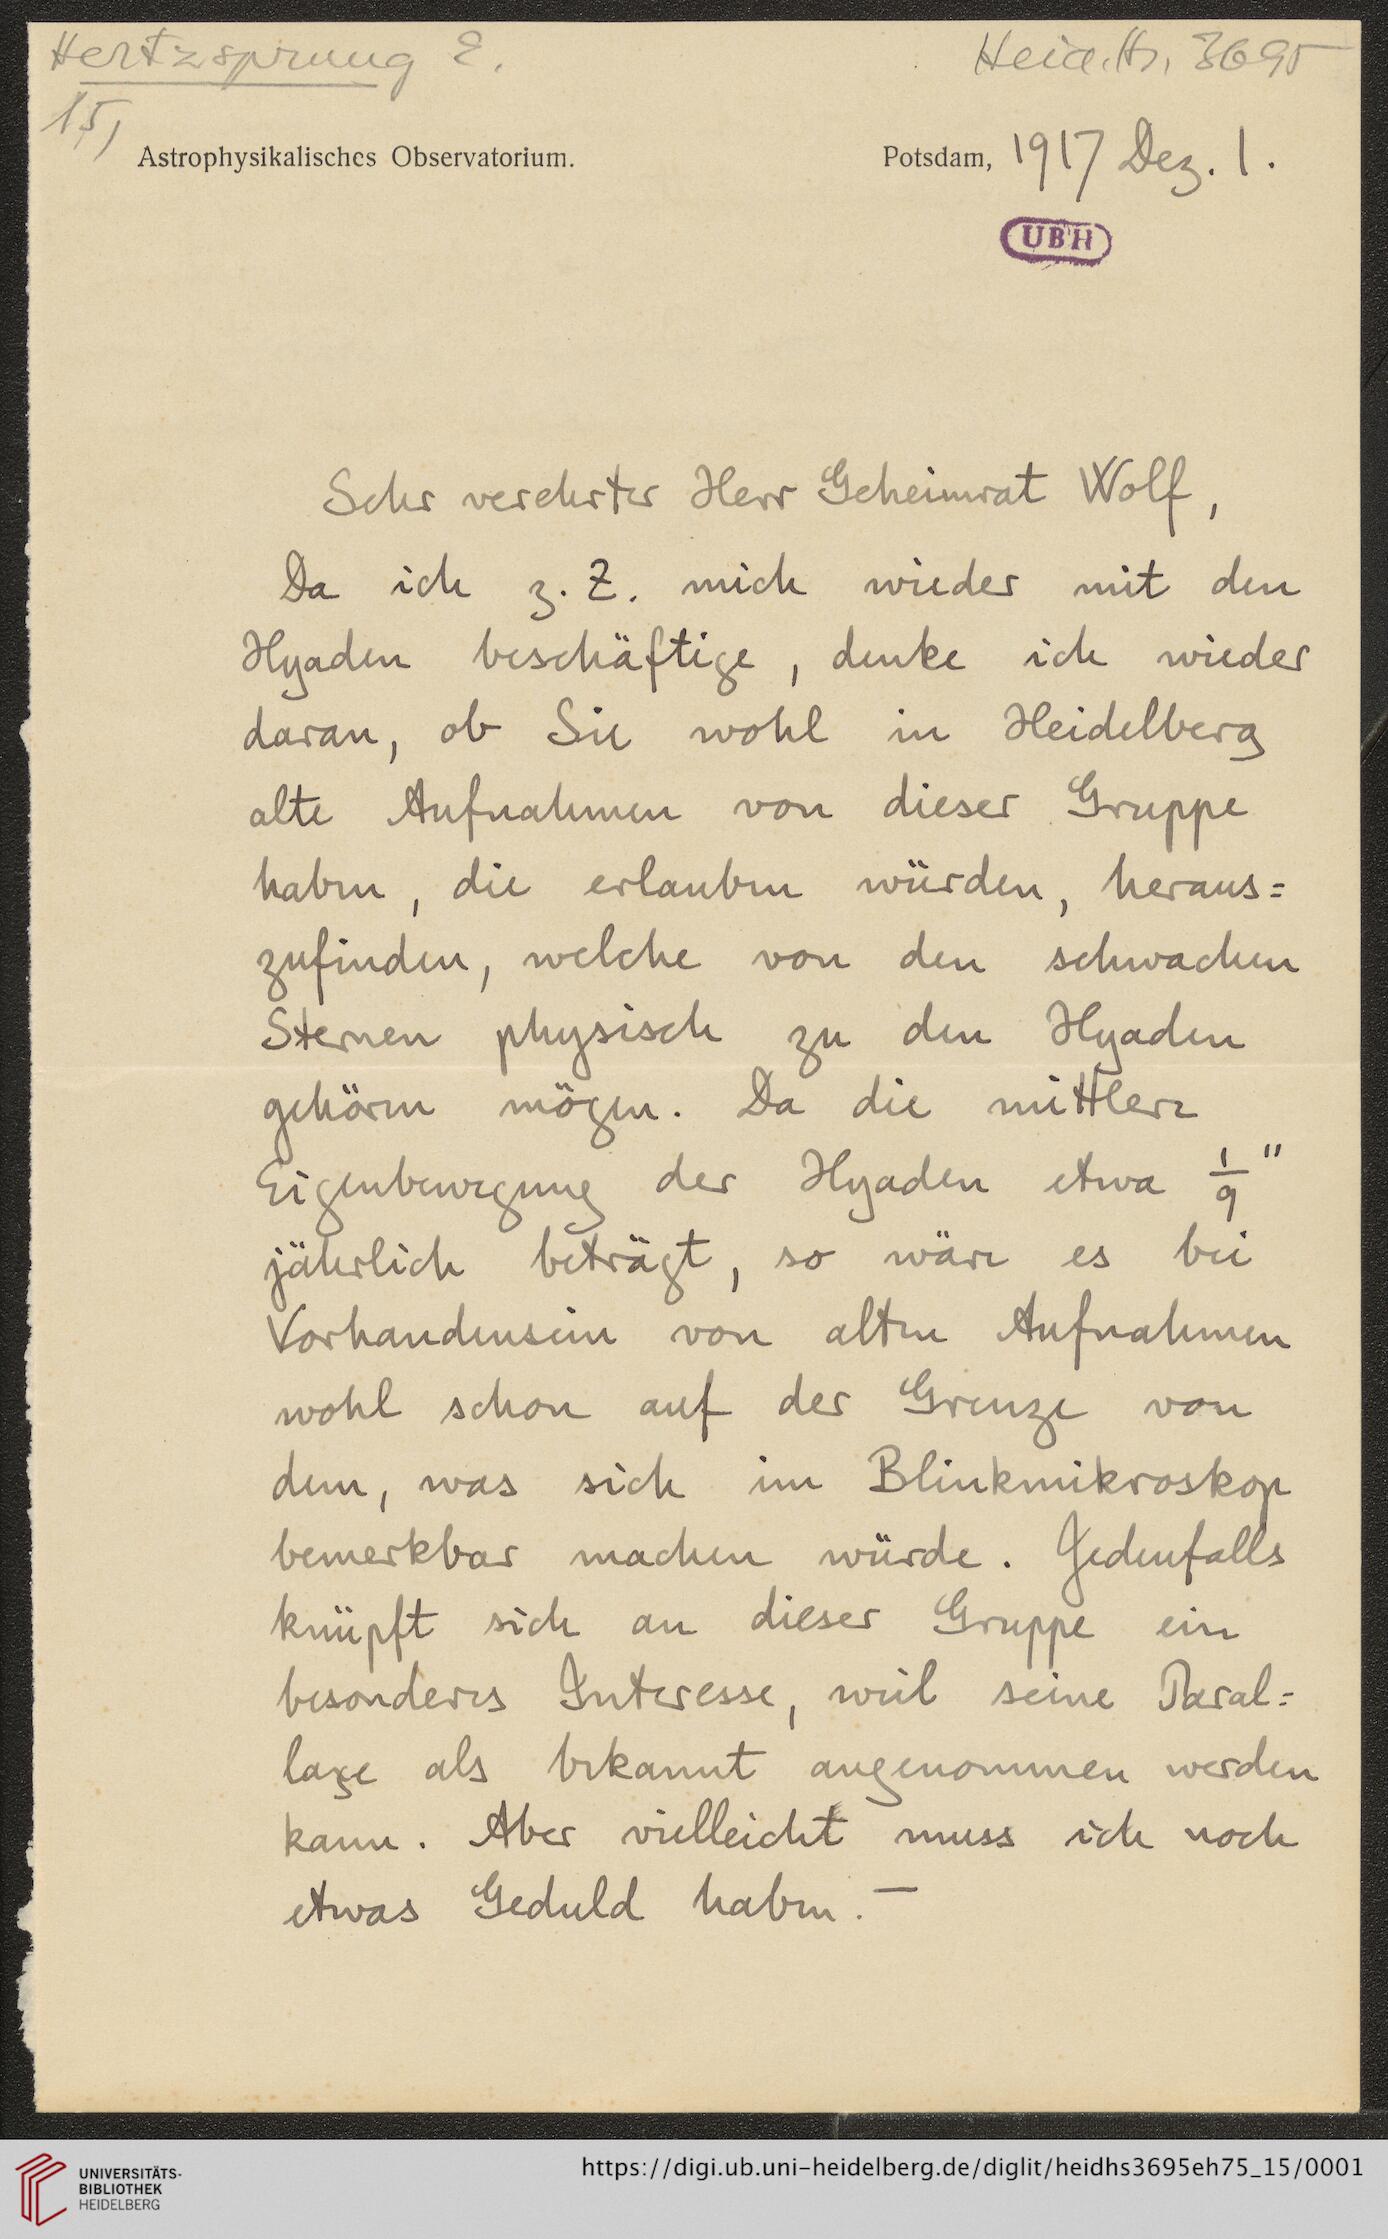 Hertzsprung E.
Heid. Hs. 3695
15,
Astrophysikalisches Observatorium.
Potsdam, 1917 Dez. 1.
UBH
Sehr verehrter Herr Geheimrat Wolf,
Da ich z. Z. mich wieder mit den
Hyaden beschäftige, denke ich wieder
daran, ob Sie wohl in Heidelberg
alte Aufnahmen von dieser Gruppe
haben, die erlauben würden, heraus=
zufinden, welche von den schwachen
Sternen physisch zu den Hyaden
gehören mögen. Da die mittlere
Eigenbewegung der Hyaden etwa 1/9"
jährlich beträgt, so wäre es bei
Vorhandensein von alten Aufnahmen
wohl schon auf der Grenze von
dem, was sich im Blinkmikroskop
bemerkbar machen würde. Jedenfalls
knüpft sich an dieser Gruppe ein
besonderes Interesse, weil seine Paral=
laxe als bekannt angenommen werden
kann. Aber vielleicht muss ich noch
etwas Geduld haben. —
UNIVERSITÄTS-
BIBLIOTHEK
HEIDELBERG
https://digi.ub.uni-heidelberg.de/diglit/heidhs3695eh75_15/0001